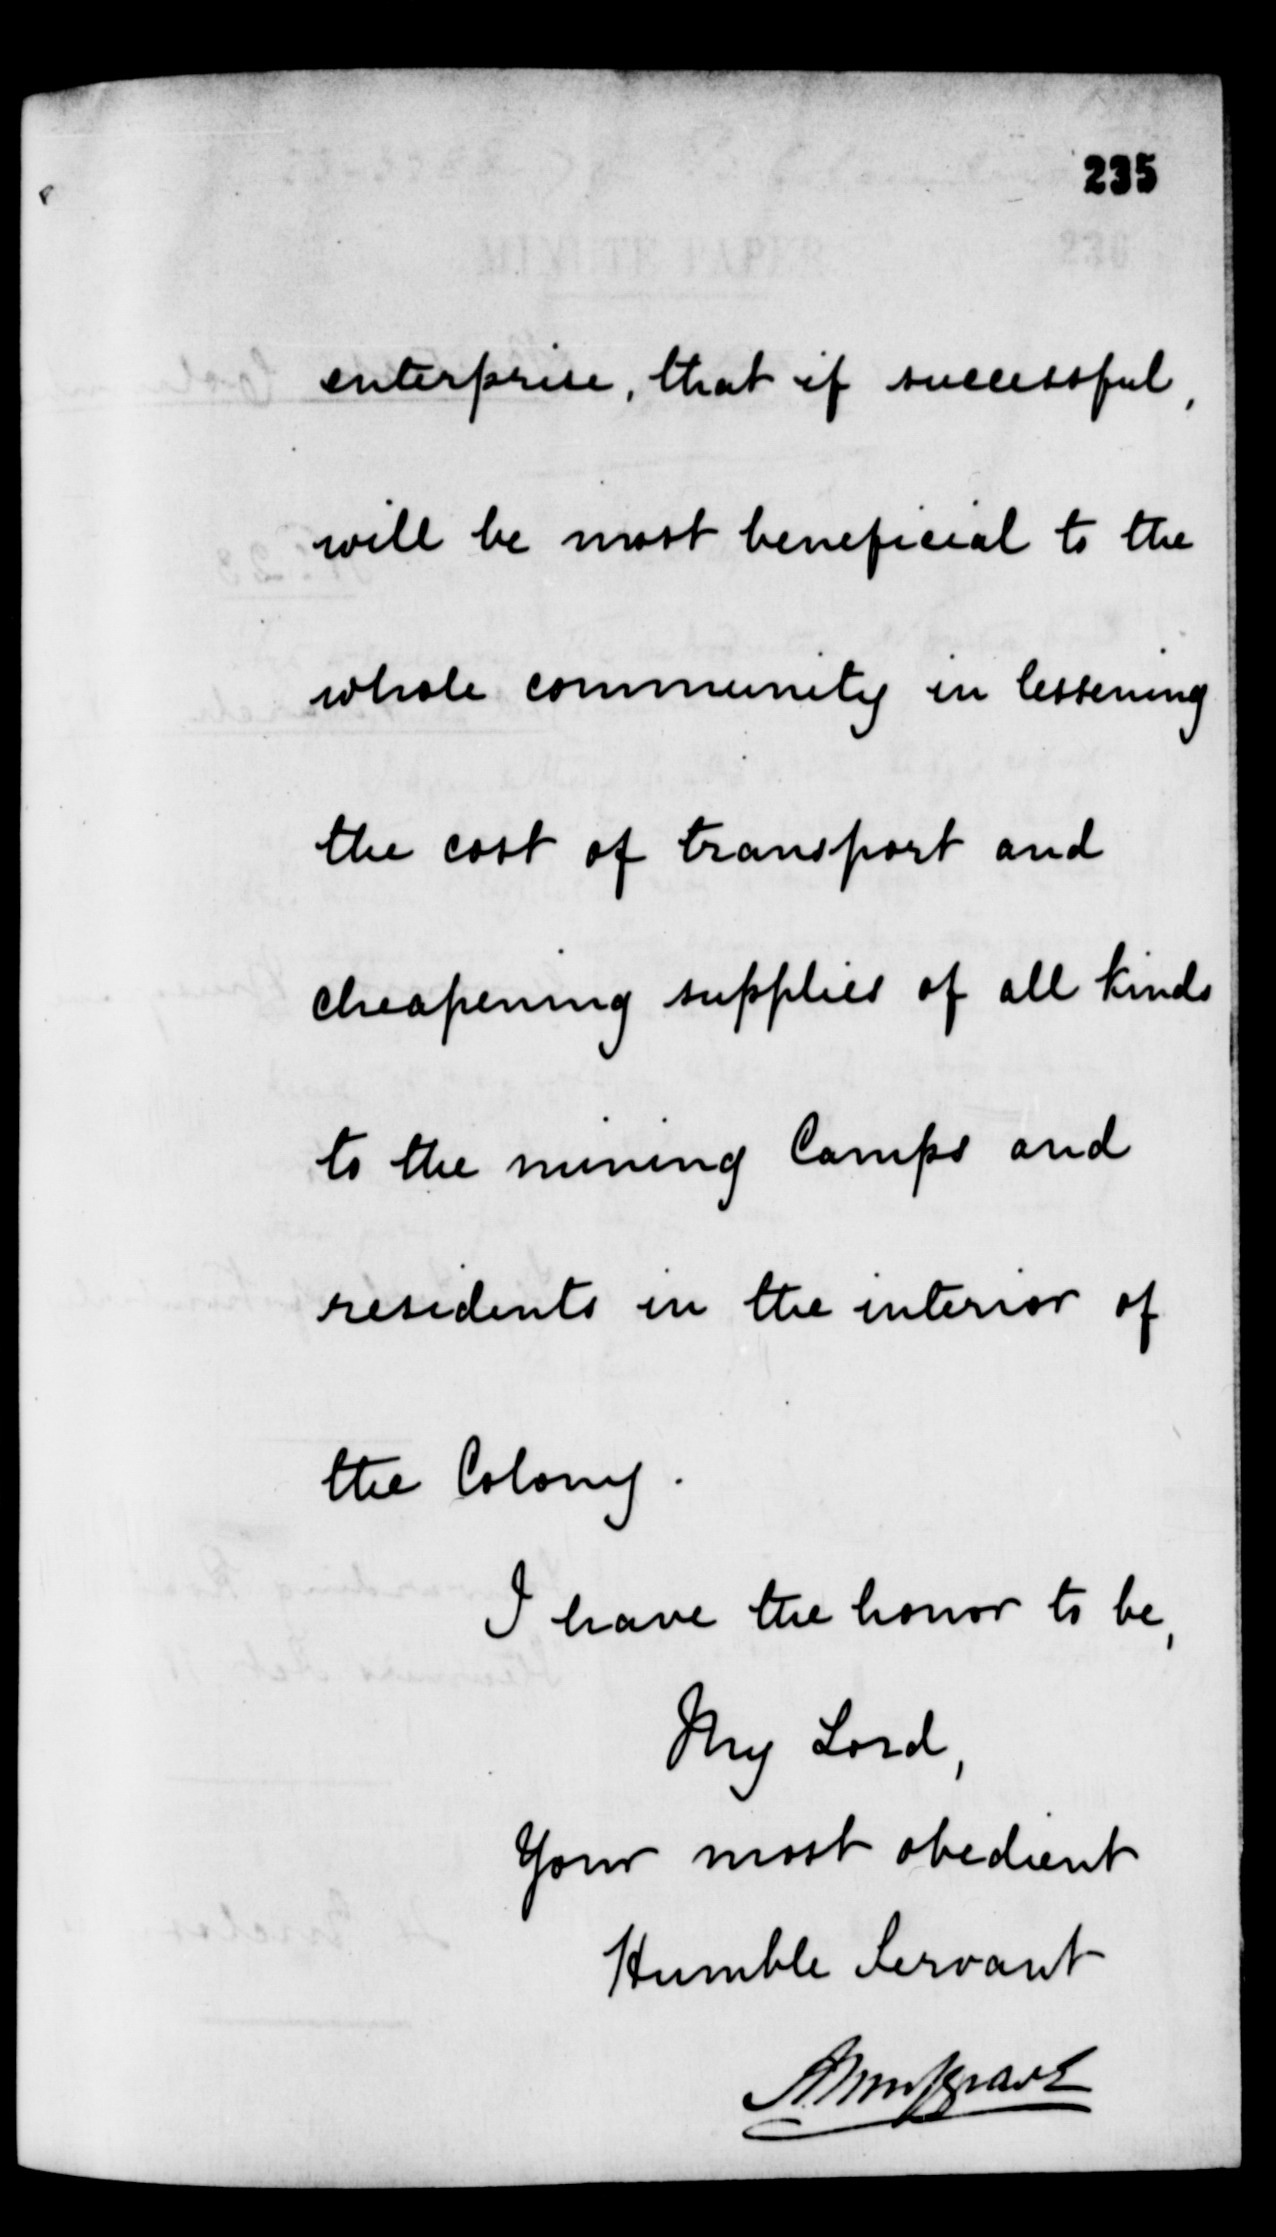 235
MINUTE PAPER
236
enterprise, that if successful,
will be most beneficial to the
whole community in lessening
the cost of transport and
cheapening supplies of all kinds
to the mining Camps and
residents in the interior of
the Colony.
I have the honor to be,
My Lord,
Your most obedient
Humble Servant
A Musgrave